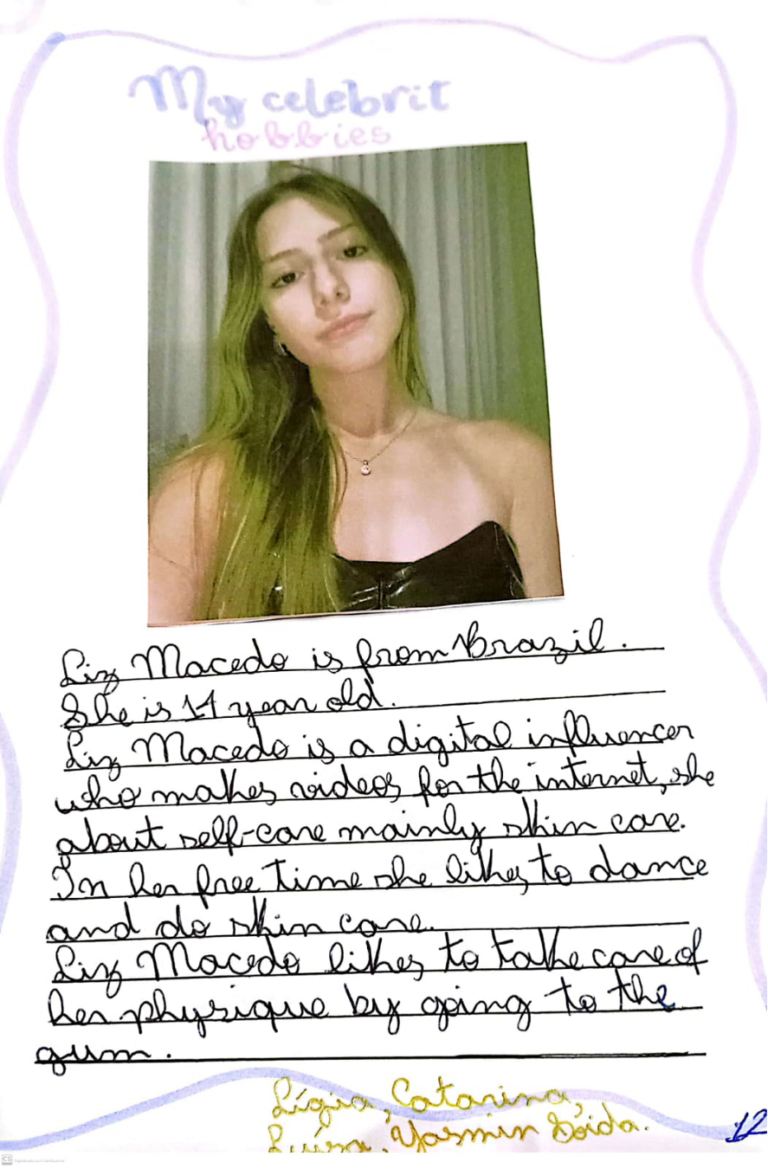 My celebrit
hobbies
Liz Macedo is from Brazil.
She is 14 year old.
Liz Macedo is a digital influencer
who makes videos for the internet, she
about self-care mainly skin care.
In her free time she likes to dance
and do skin care.
Liz Macedo likes to take care of
her physique by going to the
gum.
Lígia, Catarina,
Luísa, Yasmin
12